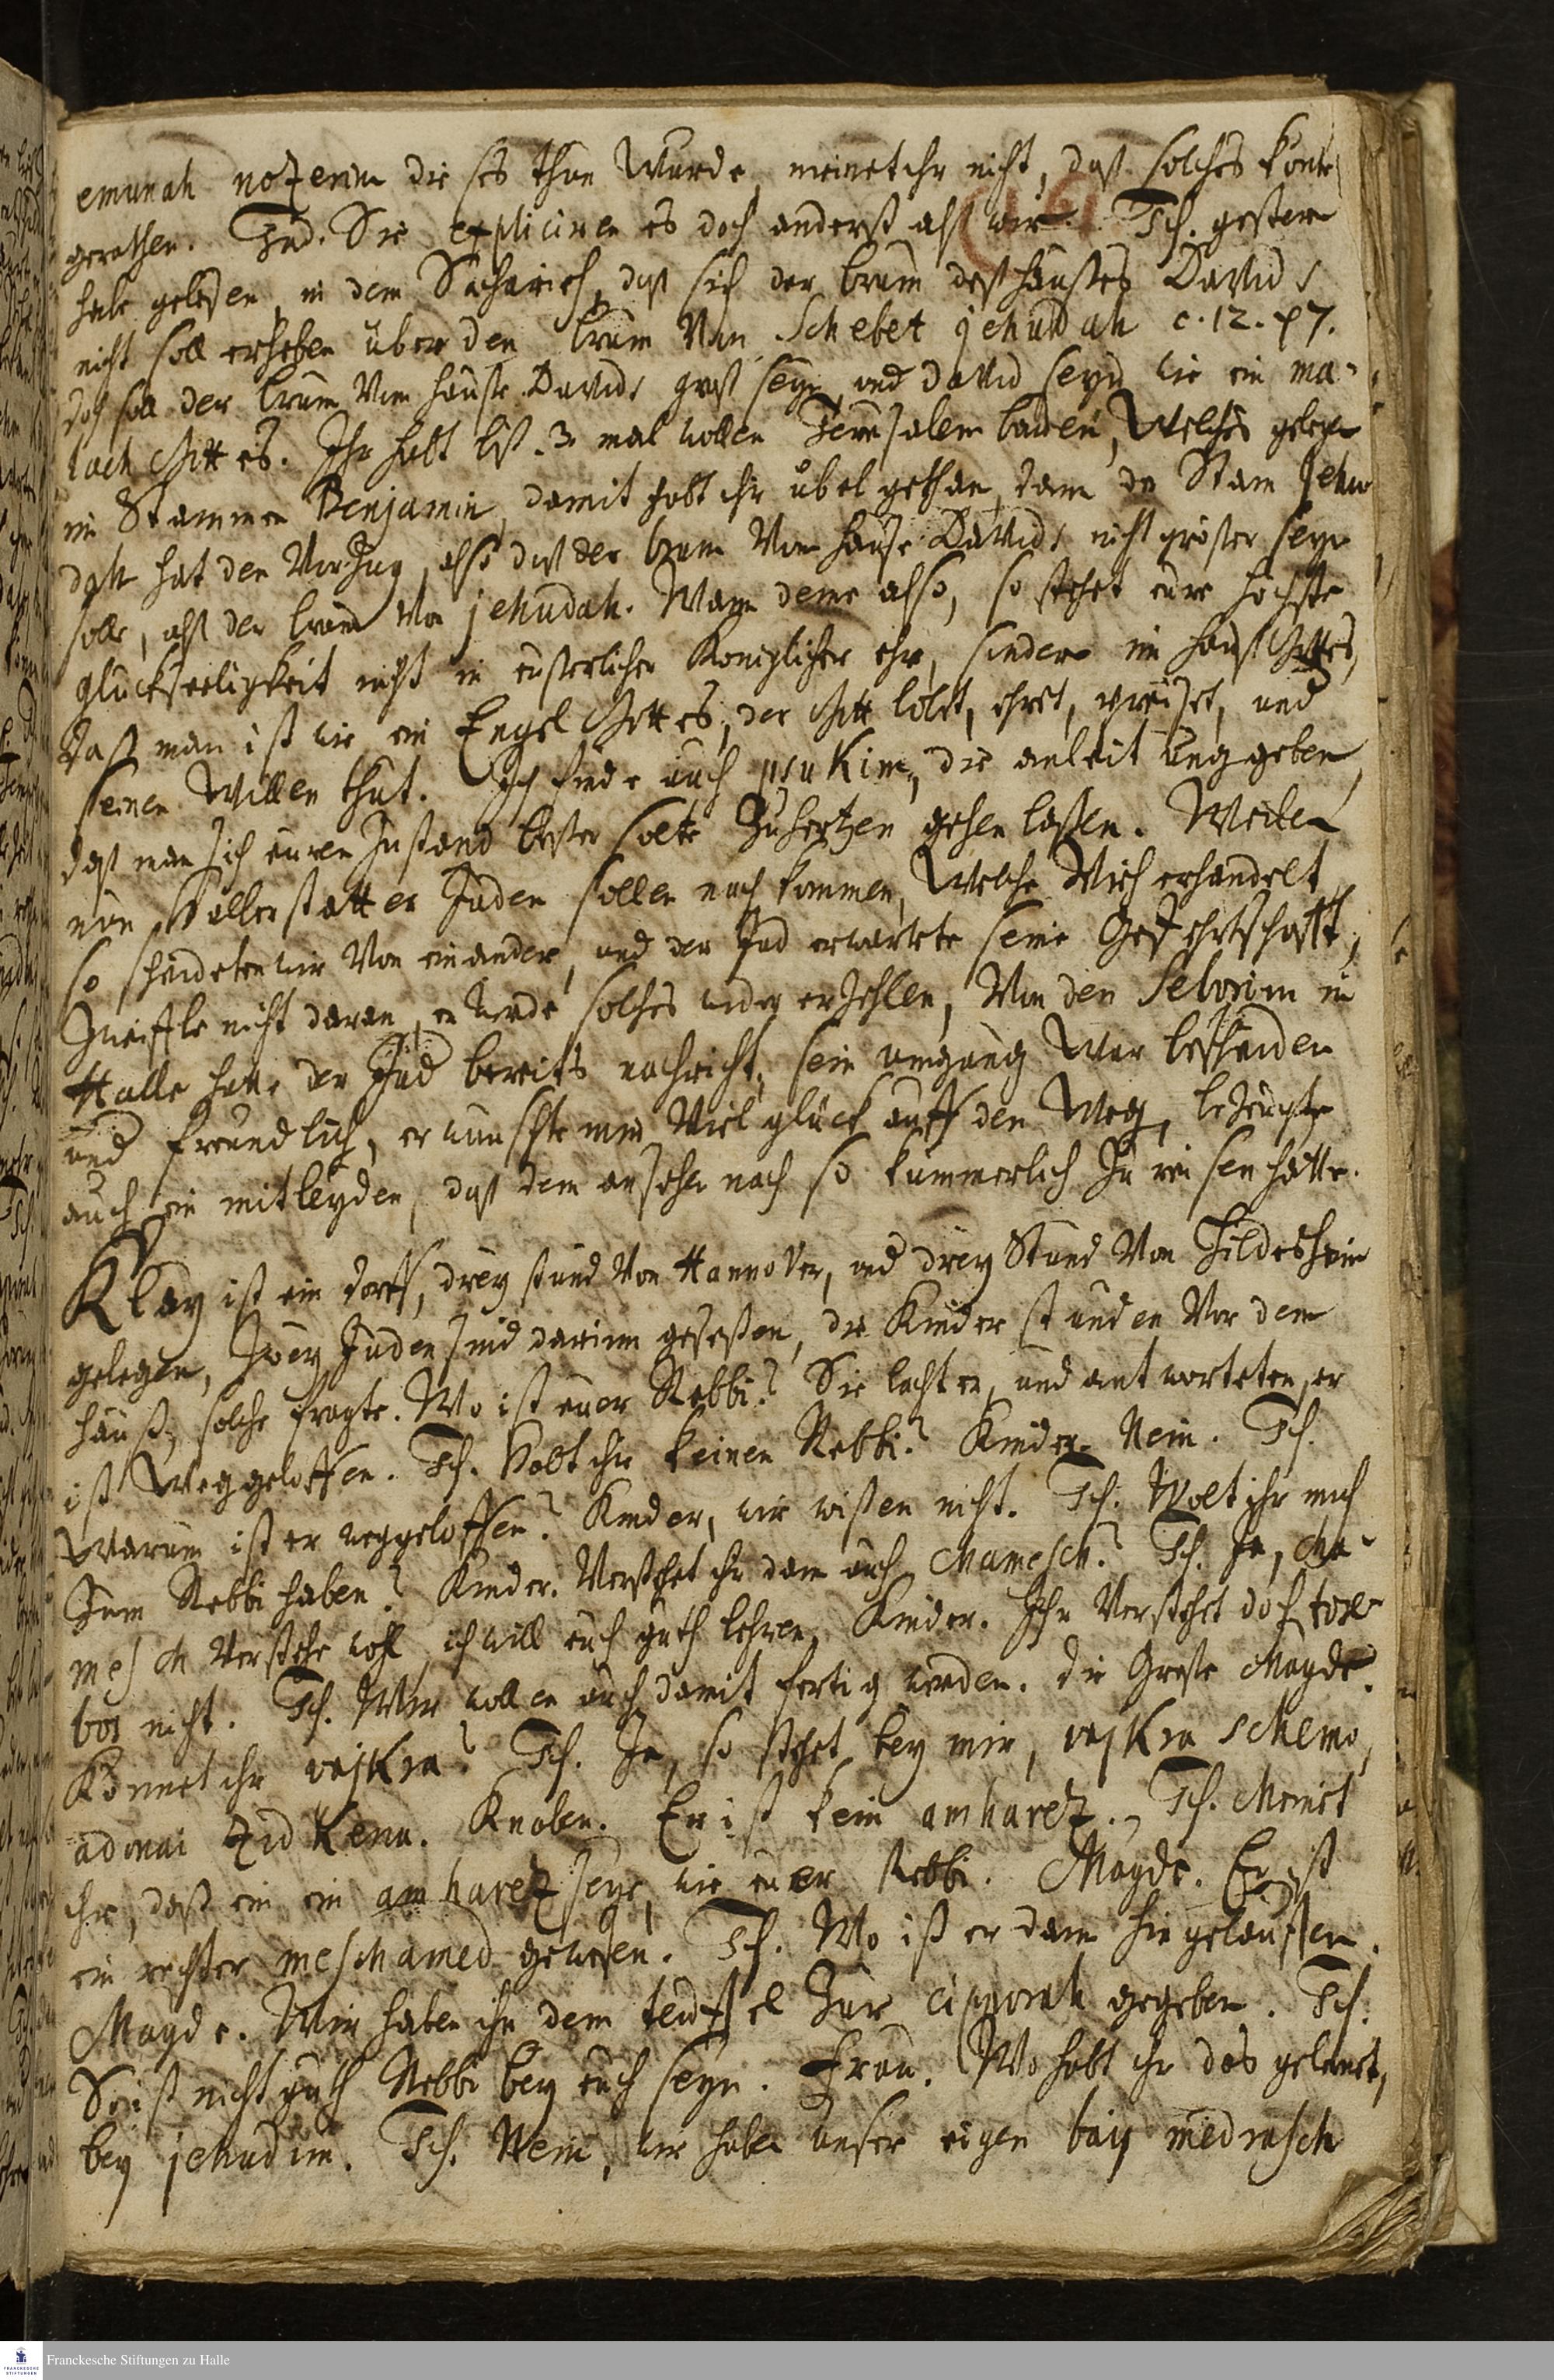 emunah nozerim dieses thun wurde, meinet ihr nicht, daß solches könte
gerathen. Jud. Sie expliciren es doch anderst alß wir. Ich. gestern
habe gelesen, in dem Sacharieh, daß sich der bruim deß Haußes Davids
nicht soll erheben über den bruim von Schebet jehudah c. 12. p 7.
doch soll der bruim vom Hauße Davids groß seyn, und David seyn wie ein ma-
lach Gottes. Ihr habt biß 3 mal wollen Jerusalem bauen, welches gelegen
im Stammen Benjamin, damit habt ihr übel gethan, dann der Stam Jehu
dah hat den Vorzug, also daß der bruim vom Hauße Davids nicht größer seyn
solle, alß der bruim von jehudah. Wann deme also, so stehet eure höchste
glückseeligkeit nicht in eusserlicher Königlicher ehr, sondern im Hauß Gottes,
daß man ist wie ein Engel Gottes, der Gott lobet, ehret, preiset, und
seinen Willen thut. Ich finde auch psukim, die anleitung geben,
daß man sich euren Zustand besser solte zu hertzen gehen laßen. Weilen
nun Halberstatter Juden sollen nach kommen, welche Vieh erhandelt,
so scheideten wir von einander, und der Jud erwartete seine Gefehrtschafft,
Zweiffle nicht daran, er werde solches wider erzehlen, von den Seforim in
Halle hatte der Jud bereits nachricht, sein umgang war bescheiden
und freundlich, er wunschte mir viel glück auff den Weg, bezeugte
auch ein mitleyden, daß dem ansehen nach so kummerlich zu reisen hätte.
Kley ist ein dorff, drey stund von Hannover, und drey Stund von Hildesheim
gelegen, Zwey Juden sind darinn geseßen, die Kinder stunden vor dem
hauß, solche fragte. Wo ist euer Rebbi? Sie lachten, und antworteten, er
ist weggeloffen. Ich. Habt ihr keinen Rebbi? Kinder. Nein. Ich.
Warum ist er weggeloffen? Kinder, wir wißen nicht. Ich. Wolt ihr mich
Zum Rebbi haben? Kinder. Verstehet ihr dann auch Chamesch? Ich. Ja, Cha-
mesch verstehe wohl, ich will euch guth lehren. Kinder. Ihr verstehet doch tose-
vos nicht. Ich. Wir wollen auch damit fertig werden. Die Große Magde.
Könnet ihr vajkra? Ich. Ja, so stehet bey mir, vajkra schemo,
adonai zidkenu. Knaben. Er ist kein amharez. Ich. Meinet
ihr, daß ein ein amharez seye, wie euer Rebbi. Magde. Er ist
ein rechter meschamed gewesen. Ich. Wo ist er dann hingelauffen.
Magde. Wir haben ihn dem teuffel zur cipporah gegeben. Ich.
So ist nicht guth Rebbi bey euch seyn. Frau. Wo habt ihr das gelernt,
bey jehudim. Ich. Nein, wir haben unser eigen bais medrasch
Franckesche Stiftungen zu Halle